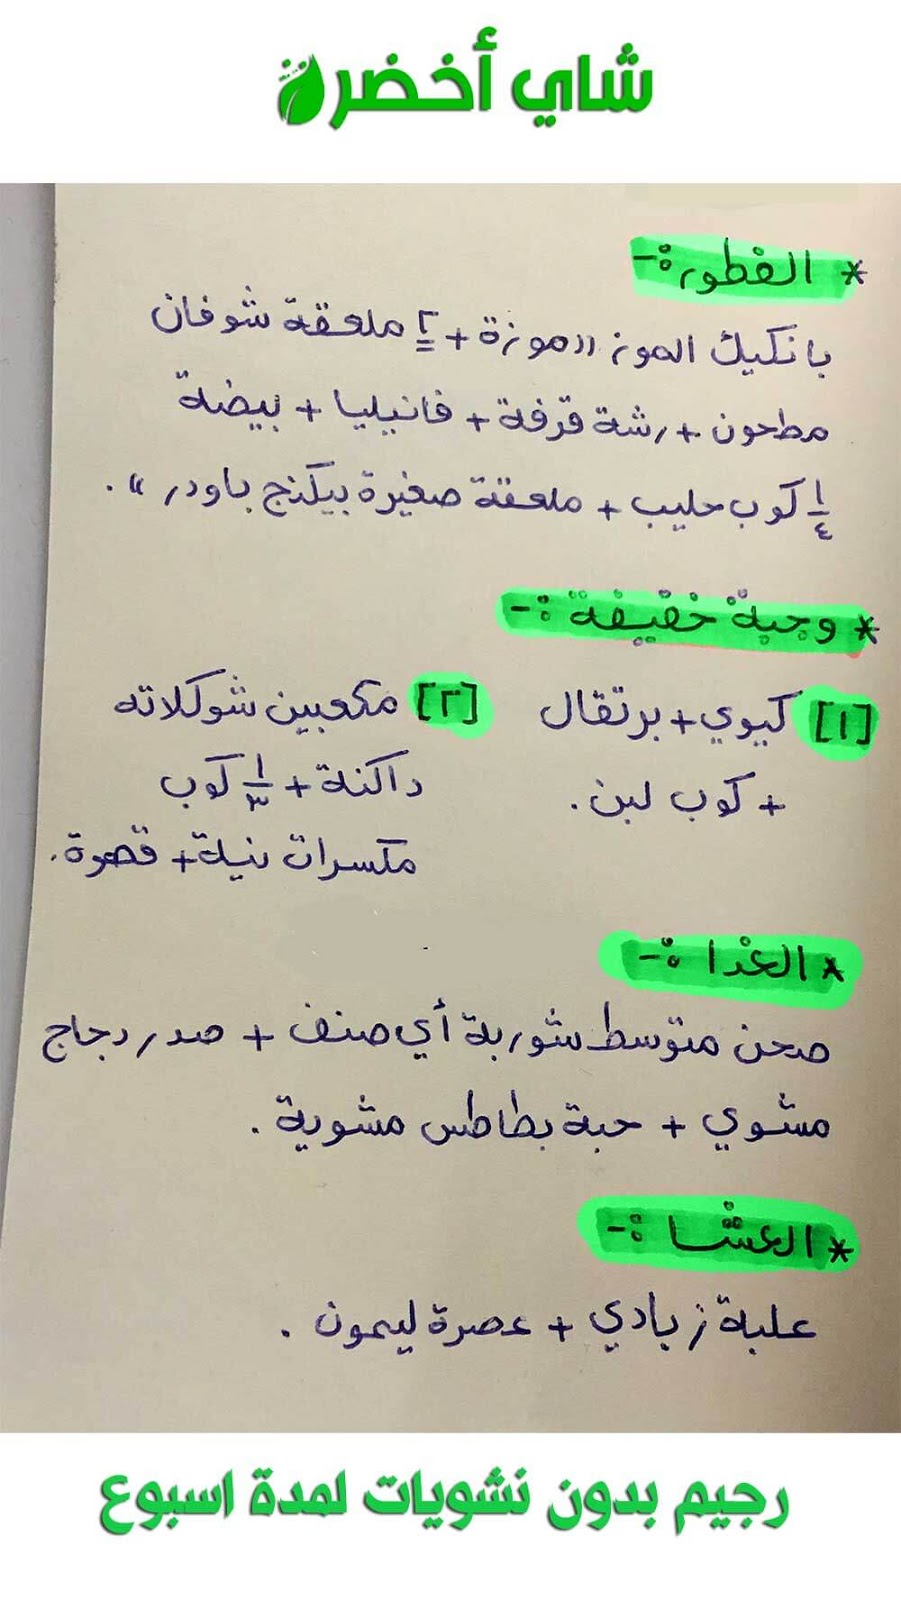 شاي أخضر
* الفطور:-
بانكيك الموز "موزة + ٢ ملعقة شوفان
مطحون + رشة قرفة + فانيليا + بيضة
١/٤ كوب حليب + ملعقة صغيرة بيكنج باودر".
* وجبة خفيفة:-
[١] كيوي + برتقال
+ كوب لبن.
[٢] مكعبين شوكلاته
داكنة + ١/٣ كوب
مكسرات نية + قهوة.
* الغدا:-
صحن متوسط شوربة أي صنف + صدر دجاج
مشوي + حبة بطاطس مشوية.
* العشا:-
علبة زبادي + عصرة ليمون.
رجيم بدون نشويات لمدة اسبوع